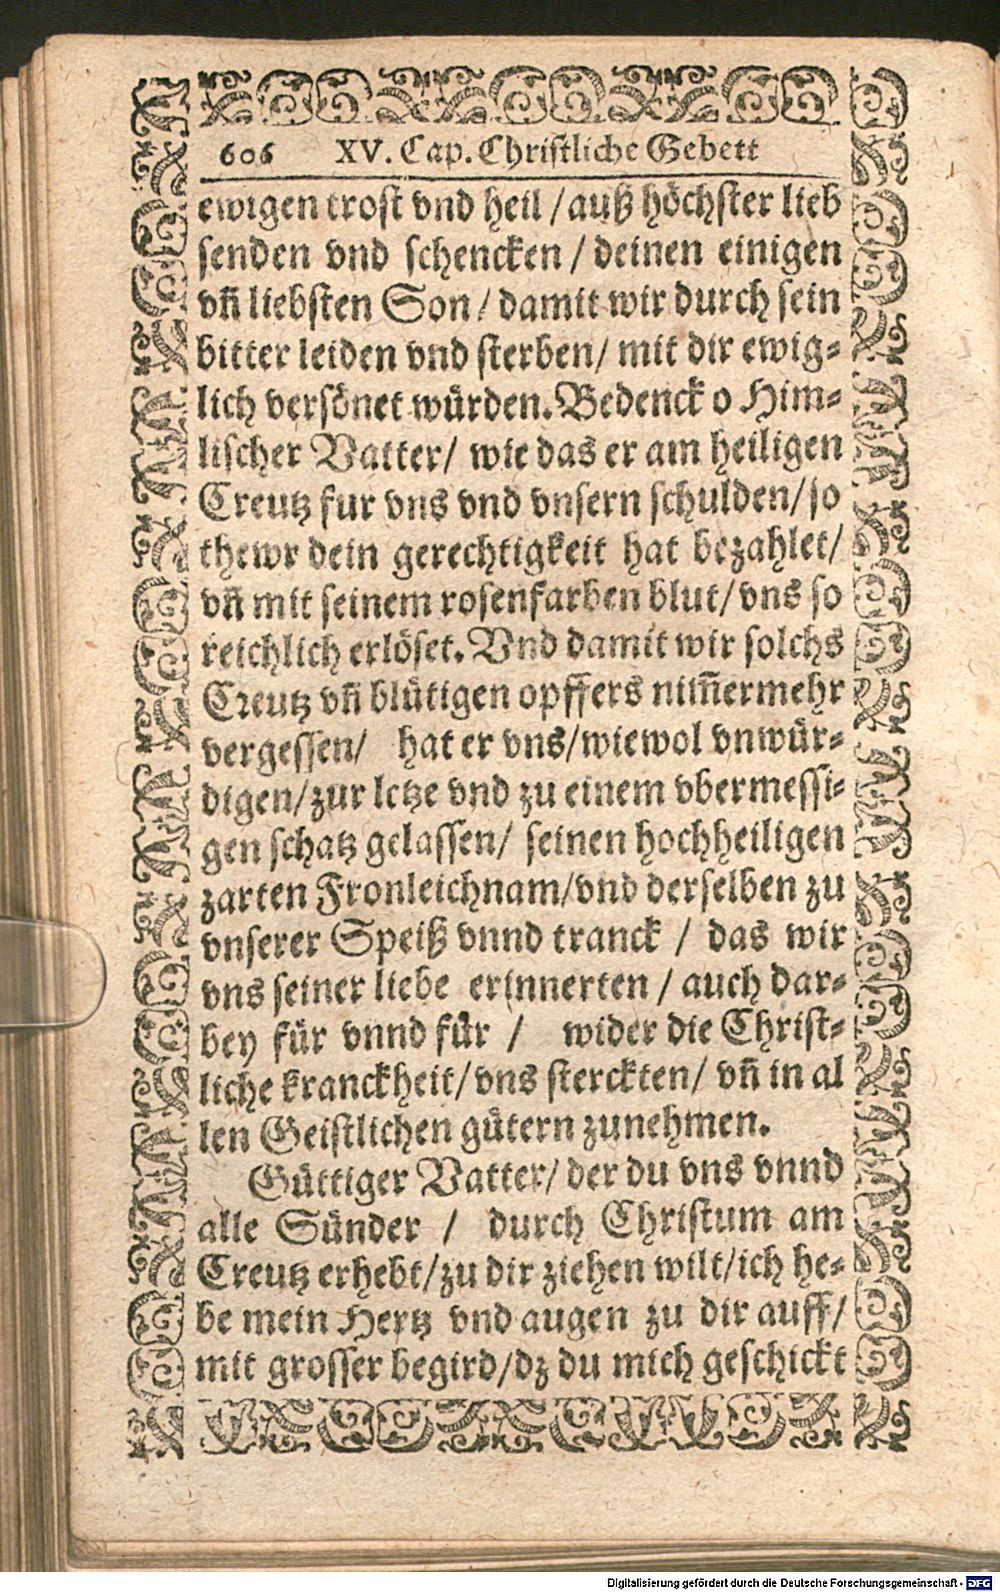 606 XV. Cap. Christliche Gebett
ewigen trost vnd heil / auß höchster lieb
senden vnd schencken / deinen einigen
vñ liebsten Son / damit wir durch sein
bitter leiden vnd sterben / mit dir ewig=
lich versönet würden. Bedenck o Him=
lischer Vatter / wie das er am heiligen
Creutz fur vns vnd vnsern schulden / so
thewr dein gerechtigkeit hat bezahlet /
vñ mit seinem rosenfarben blut / vns so
reichlich erlöset. Vnd damit wir solchs
Creutz vñ blütigen opffers nim̃ermehr
vergessen / hat er vns / wiewol vnwür=
digen / zur letze vnd zu einem vbermessi=
gen schatz gelassen / seinen hochheiligen
zarten Fronleichnam / vnd derselben zu
vnserer Speiß vnnd tranck / das wir
vns seiner liebe erinnerten / auch dar=
bey für vnnd für / wider die Christ=
liche kranckheit / vns sterckten / vñ in al
len Geistlichen gütern zunehmen.
Güttiger Vatter / der du vns vnnd
alle Sünder / durch Christum am
Creutz erhebt / zu dir ziehen wilt / ich he=
be mein Hertz vnd augen zu dir auff /
mit grosser begird / dz du mich geschickt
Digitalisierung gefördert durch die Deutsche Forschungsgemeinschaft - DFG